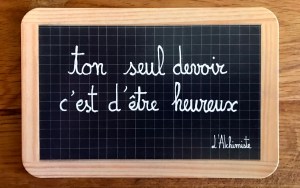 ton seul devoir
c'est d'être heureux
L'Alchimiste